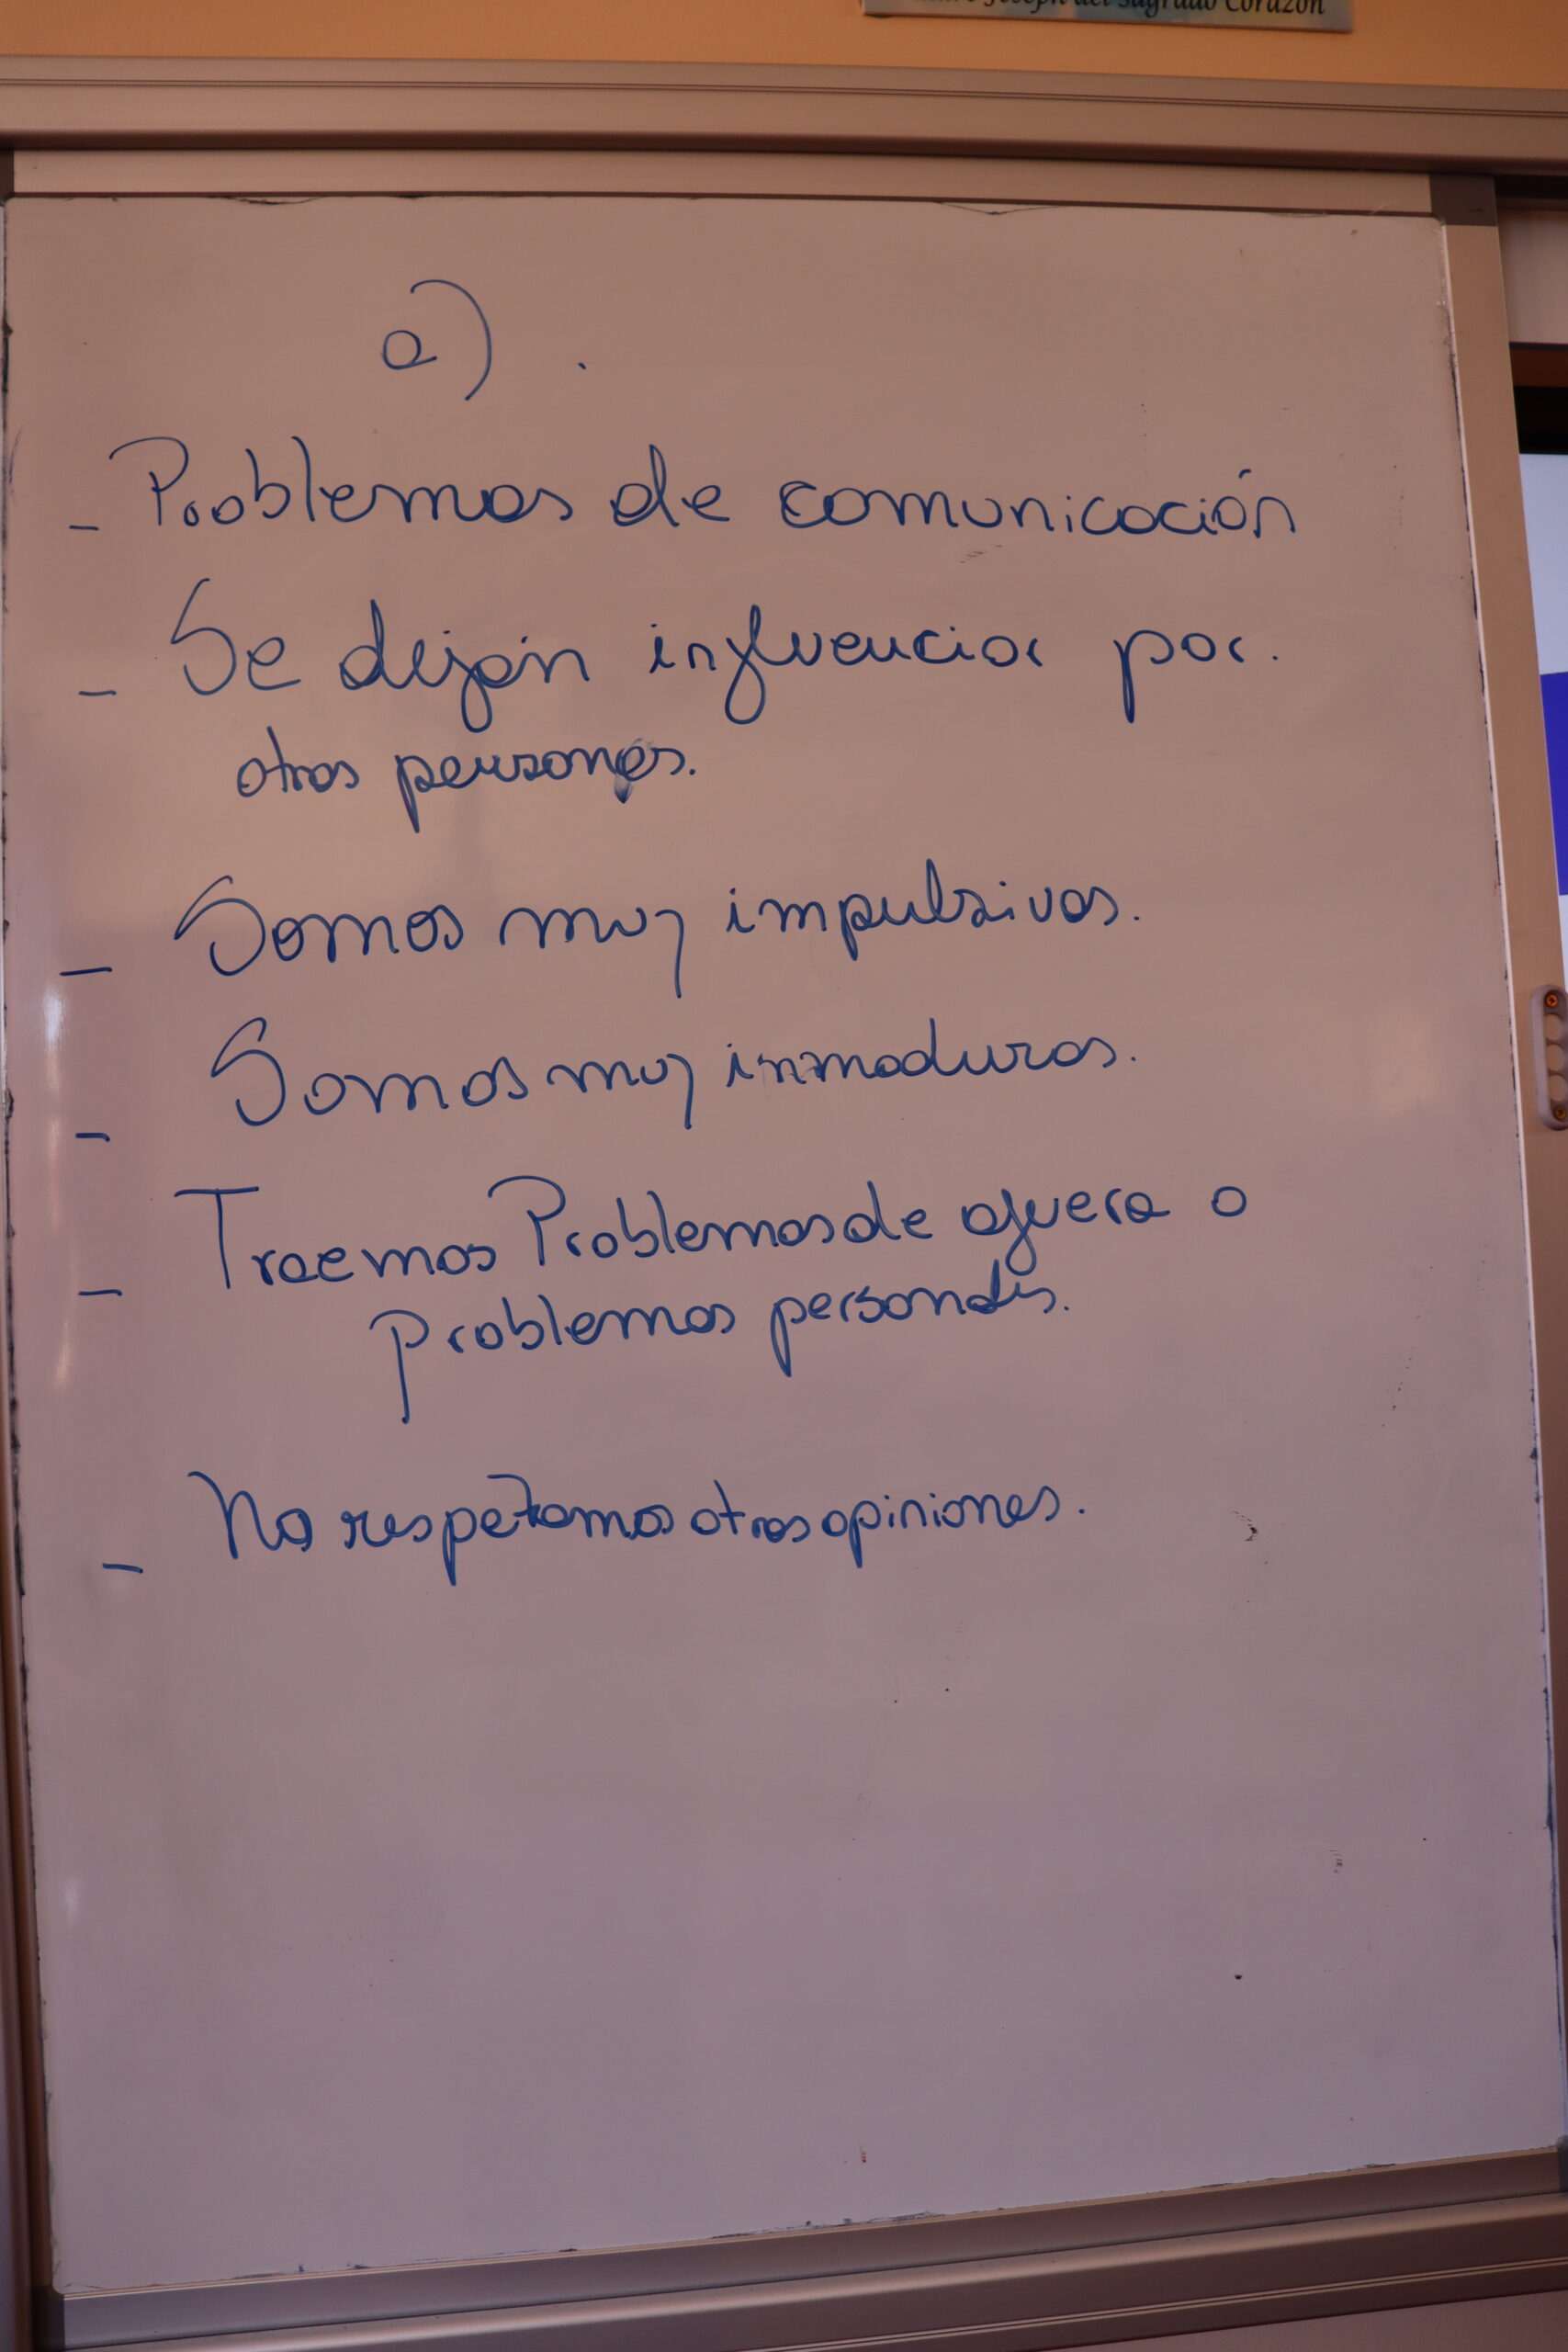 Joseph del Sagrado Corazón
a) .
- Problemas de comunicación
- Se dejan influenciar por.
otras personas.
- Somos muy impulsivas.
- Somos muy inmaduras.
- Traemos Problemas de afuera o
problemas personales.
- No respetamos otras opiniones.